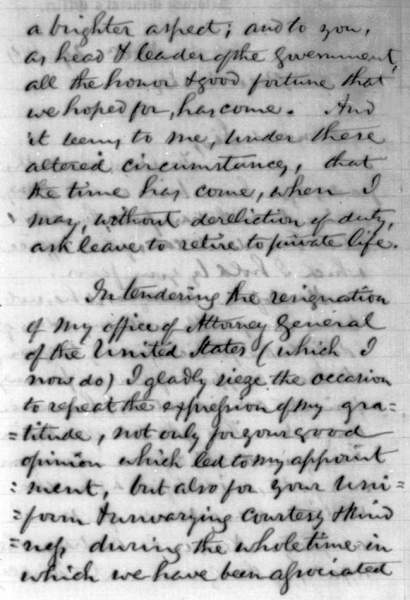 a brighter aspect; and to you,
as head & leader of the Government,
all the honor & good fortune that
we hoped for, has come. And
it seems to me, under these
altered circumstances, that
the time has come, when I
may, without dereliction of duty,
ask leave to retire to private life.
In tendering the resignation
of my office of Attorney General
of the United States (which I
now do) I gladly sieze the occasion
to repeat the expression of my gra-
=titude, not only for your good
opinion which led to my appoint
=ment, but also for your uni-
=form & unvarying courtesy & kind
=ness during the whole time in
which we have been associated